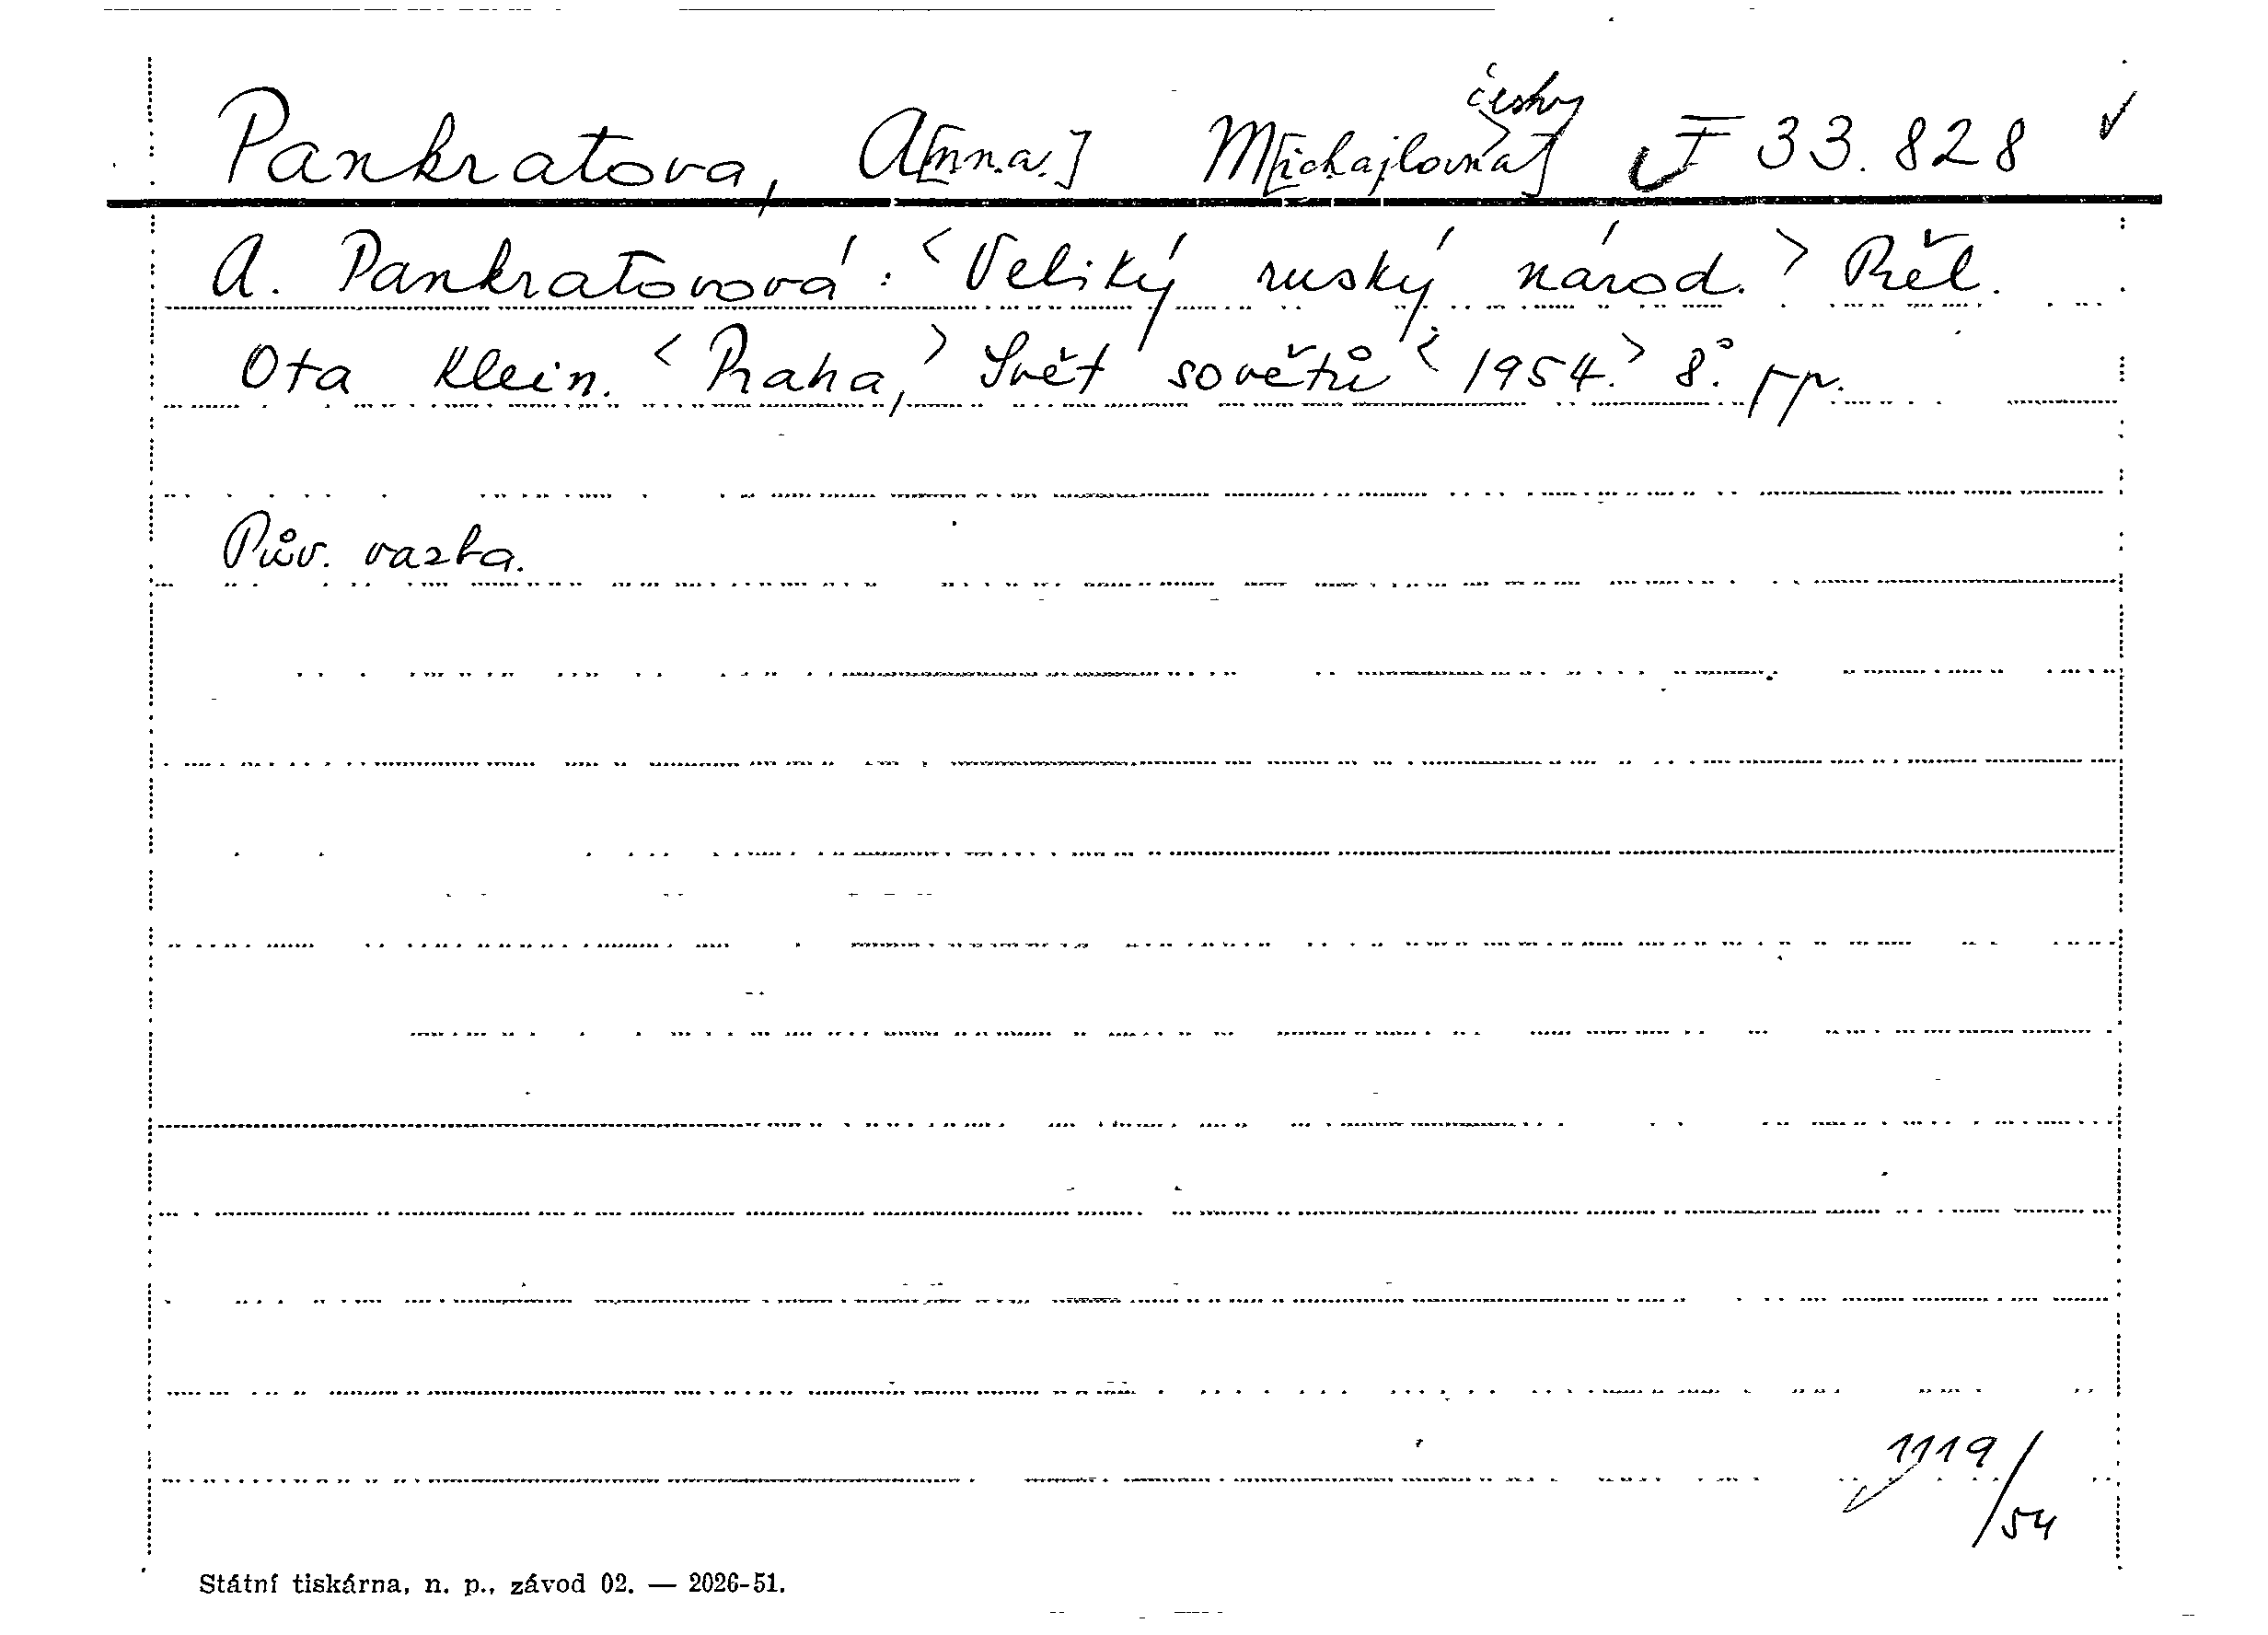 česky
Pankratova, A[nna.] M[ichajlovna] F 33.828
A. Pankratovová: <Veliký ruský národ.> Přel.
Ota Klein. <Praha,> Svět sovětů <1954.> 8°.
Pův. vazba.
1119/54
Státní tiskárna, n. p., závod 02. — 2026-51.